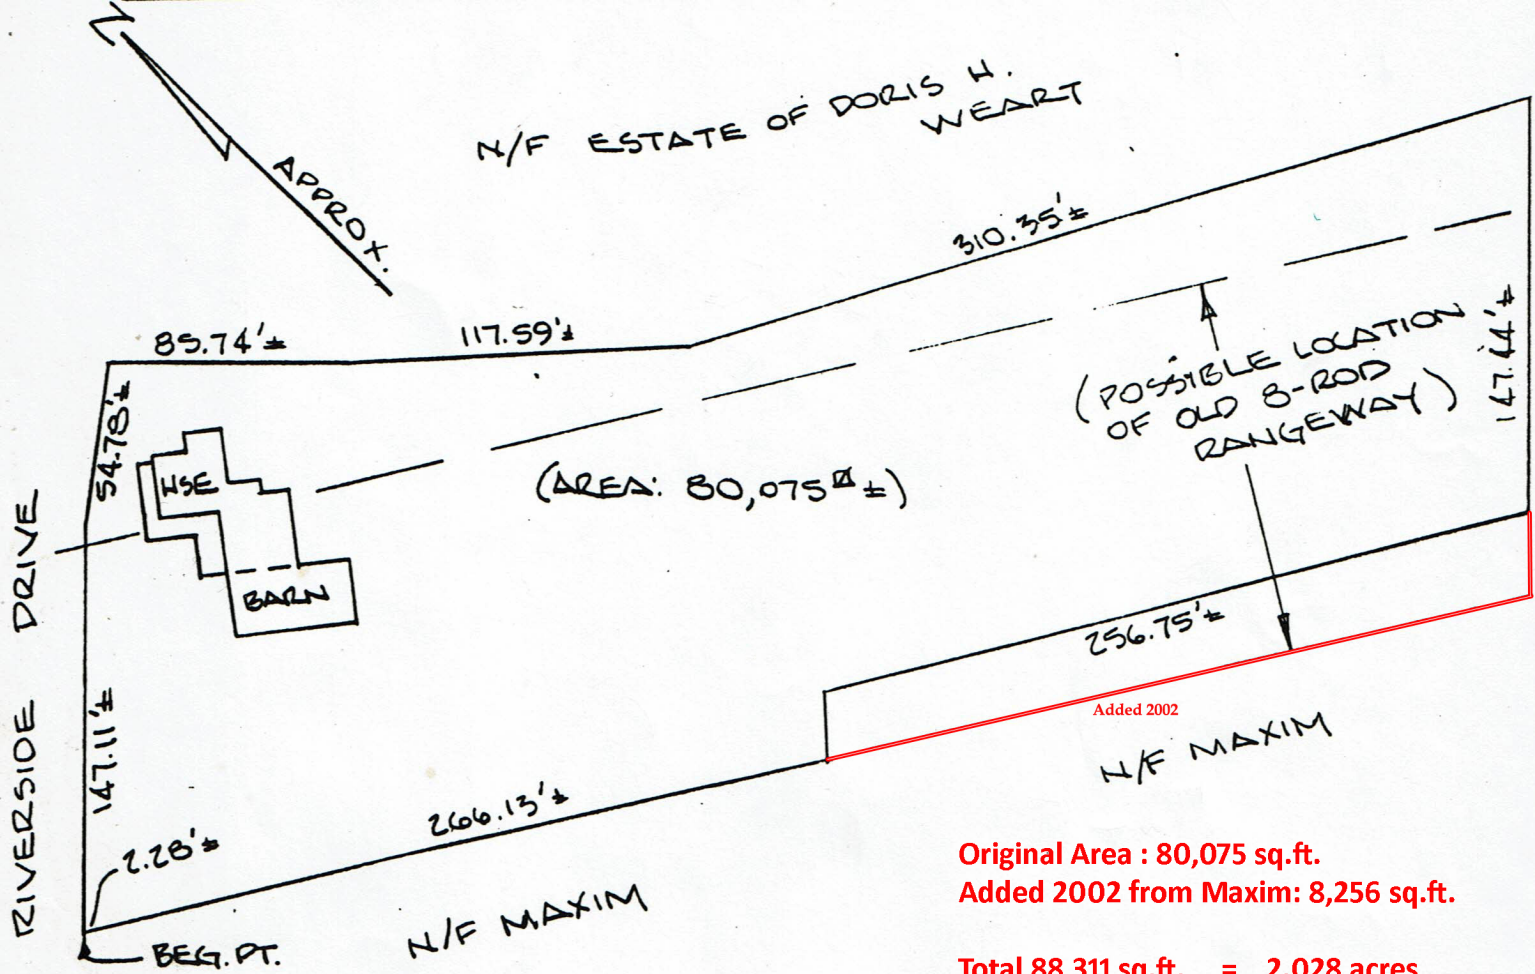 APPROX.
N/F ESTATE OF DORIS H.
WEART
310.35'±
85.74'±
117.59'±
54.78'±
147.44'±
(POSSIBLE LOCATION
OF OLD 8-ROD
RANGEWAY)
HSE
(AREA: 80,075 ±)
BARN
RIVERSIDE DRIVE
147.11'±
256.75'±
Added 2002
N/F MAXIM
266.13'±
2.28'±
N/F MAXIM
BEG. PT.
Original Area : 80,075 sq.ft.
Added 2002 from Maxim: 8,256 sq.ft.
Total 88,311 sq.ft. = 2.028 acres